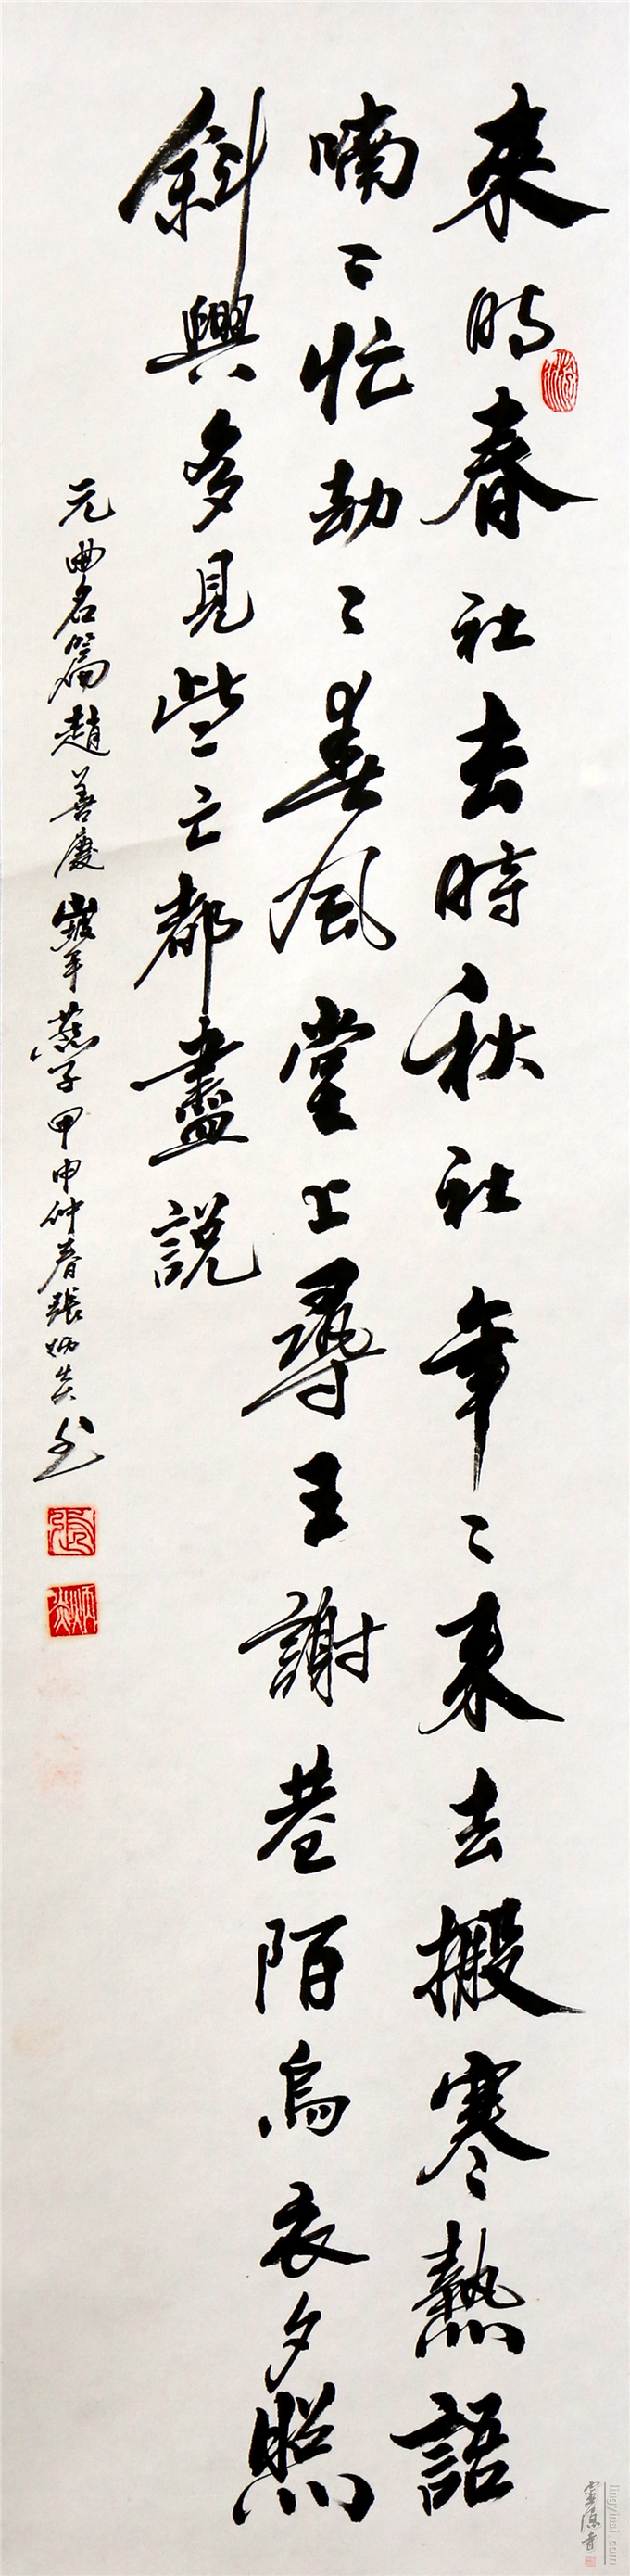 来时春社去時秋社年〻来去搬寒熱語
喃〻忙劫〻春風堂上尋王謝巷陌烏衣夕照
斜興多見些亡都盡説
元曲名篇趙善慶山坡羊燕子甲申仲春張炳炎书
lingyinsi.com